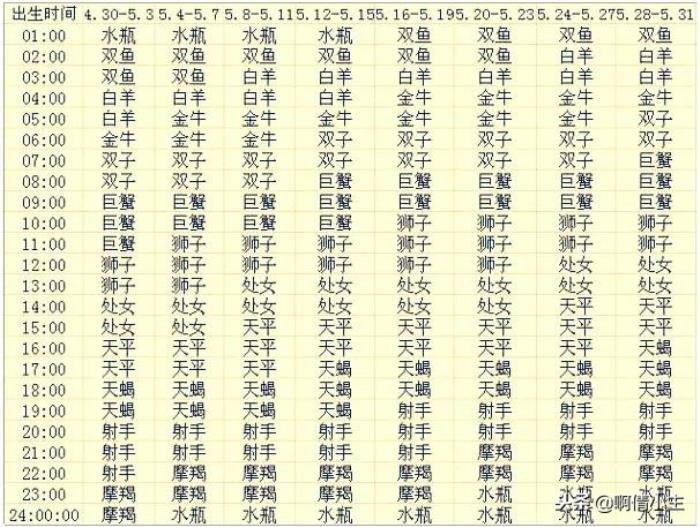 出生时间 4.30-5.3 5.4-5.7 5.8-5.11 5.12-5.15 5.16-5.19 5.20-5.23 5.24-5.27 5.28-5.31
01:00 水瓶 水瓶 水瓶 水瓶 双鱼 双鱼 双鱼 双鱼
02:00 双鱼 双鱼 双鱼 双鱼 双鱼 双鱼 白羊 白羊
03:00 双鱼 双鱼 白羊 白羊 白羊 白羊 白羊 白羊
04:00 白羊 白羊 白羊 白羊 金牛 金牛 金牛 金牛
05:00 白羊 金牛 金牛 金牛 金牛 金牛 金牛 双子
06:00 金牛 金牛 金牛 双子 双子 双子 双子 双子
07:00 双子 双子 双子 双子 双子 双子 双子 巨蟹
08:00 双子 双子 双子 巨蟹 巨蟹 巨蟹 巨蟹 巨蟹
09:00 巨蟹 巨蟹 巨蟹 巨蟹 巨蟹 巨蟹 巨蟹 巨蟹
10:00 巨蟹 巨蟹 巨蟹 巨蟹 狮子 狮子 狮子 狮子
11:00 巨蟹 狮子 狮子 狮子 狮子 狮子 狮子 狮子
12:00 狮子 狮子 狮子 狮子 狮子 狮子 处女 处女
13:00 狮子 狮子 处女 处女 处女 处女 处女 处女
14:00 处女 处女 处女 处女 处女 处女 天平 天平
15:00 处女 处女 天平 天平 天平 天平 天平 天平
16:00 天平 天平 天平 天平 天平 天平 天平 天蝎
17:00 天平 天平 天平 天蝎 天蝎 天蝎 天蝎 天蝎
18:00 天蝎 天蝎 天蝎 天蝎 天蝎 天蝎 天蝎 天蝎
19:00 天蝎 天蝎 天蝎 天蝎 射手 射手 射手 射手
20:00 射手 射手 射手 射手 射手 射手 射手 射手
21:00 射手 射手 射手 射手 射手 摩羯 摩羯 摩羯
22:00 射手 摩羯 摩羯 摩羯 摩羯 摩羯 摩羯 摩羯
23:00 摩羯 摩羯 摩羯 摩羯 摩羯 水瓶 水瓶
24:00:00 摩羯 水瓶 水瓶 水瓶 水瓶 水瓶 水瓶 水瓶